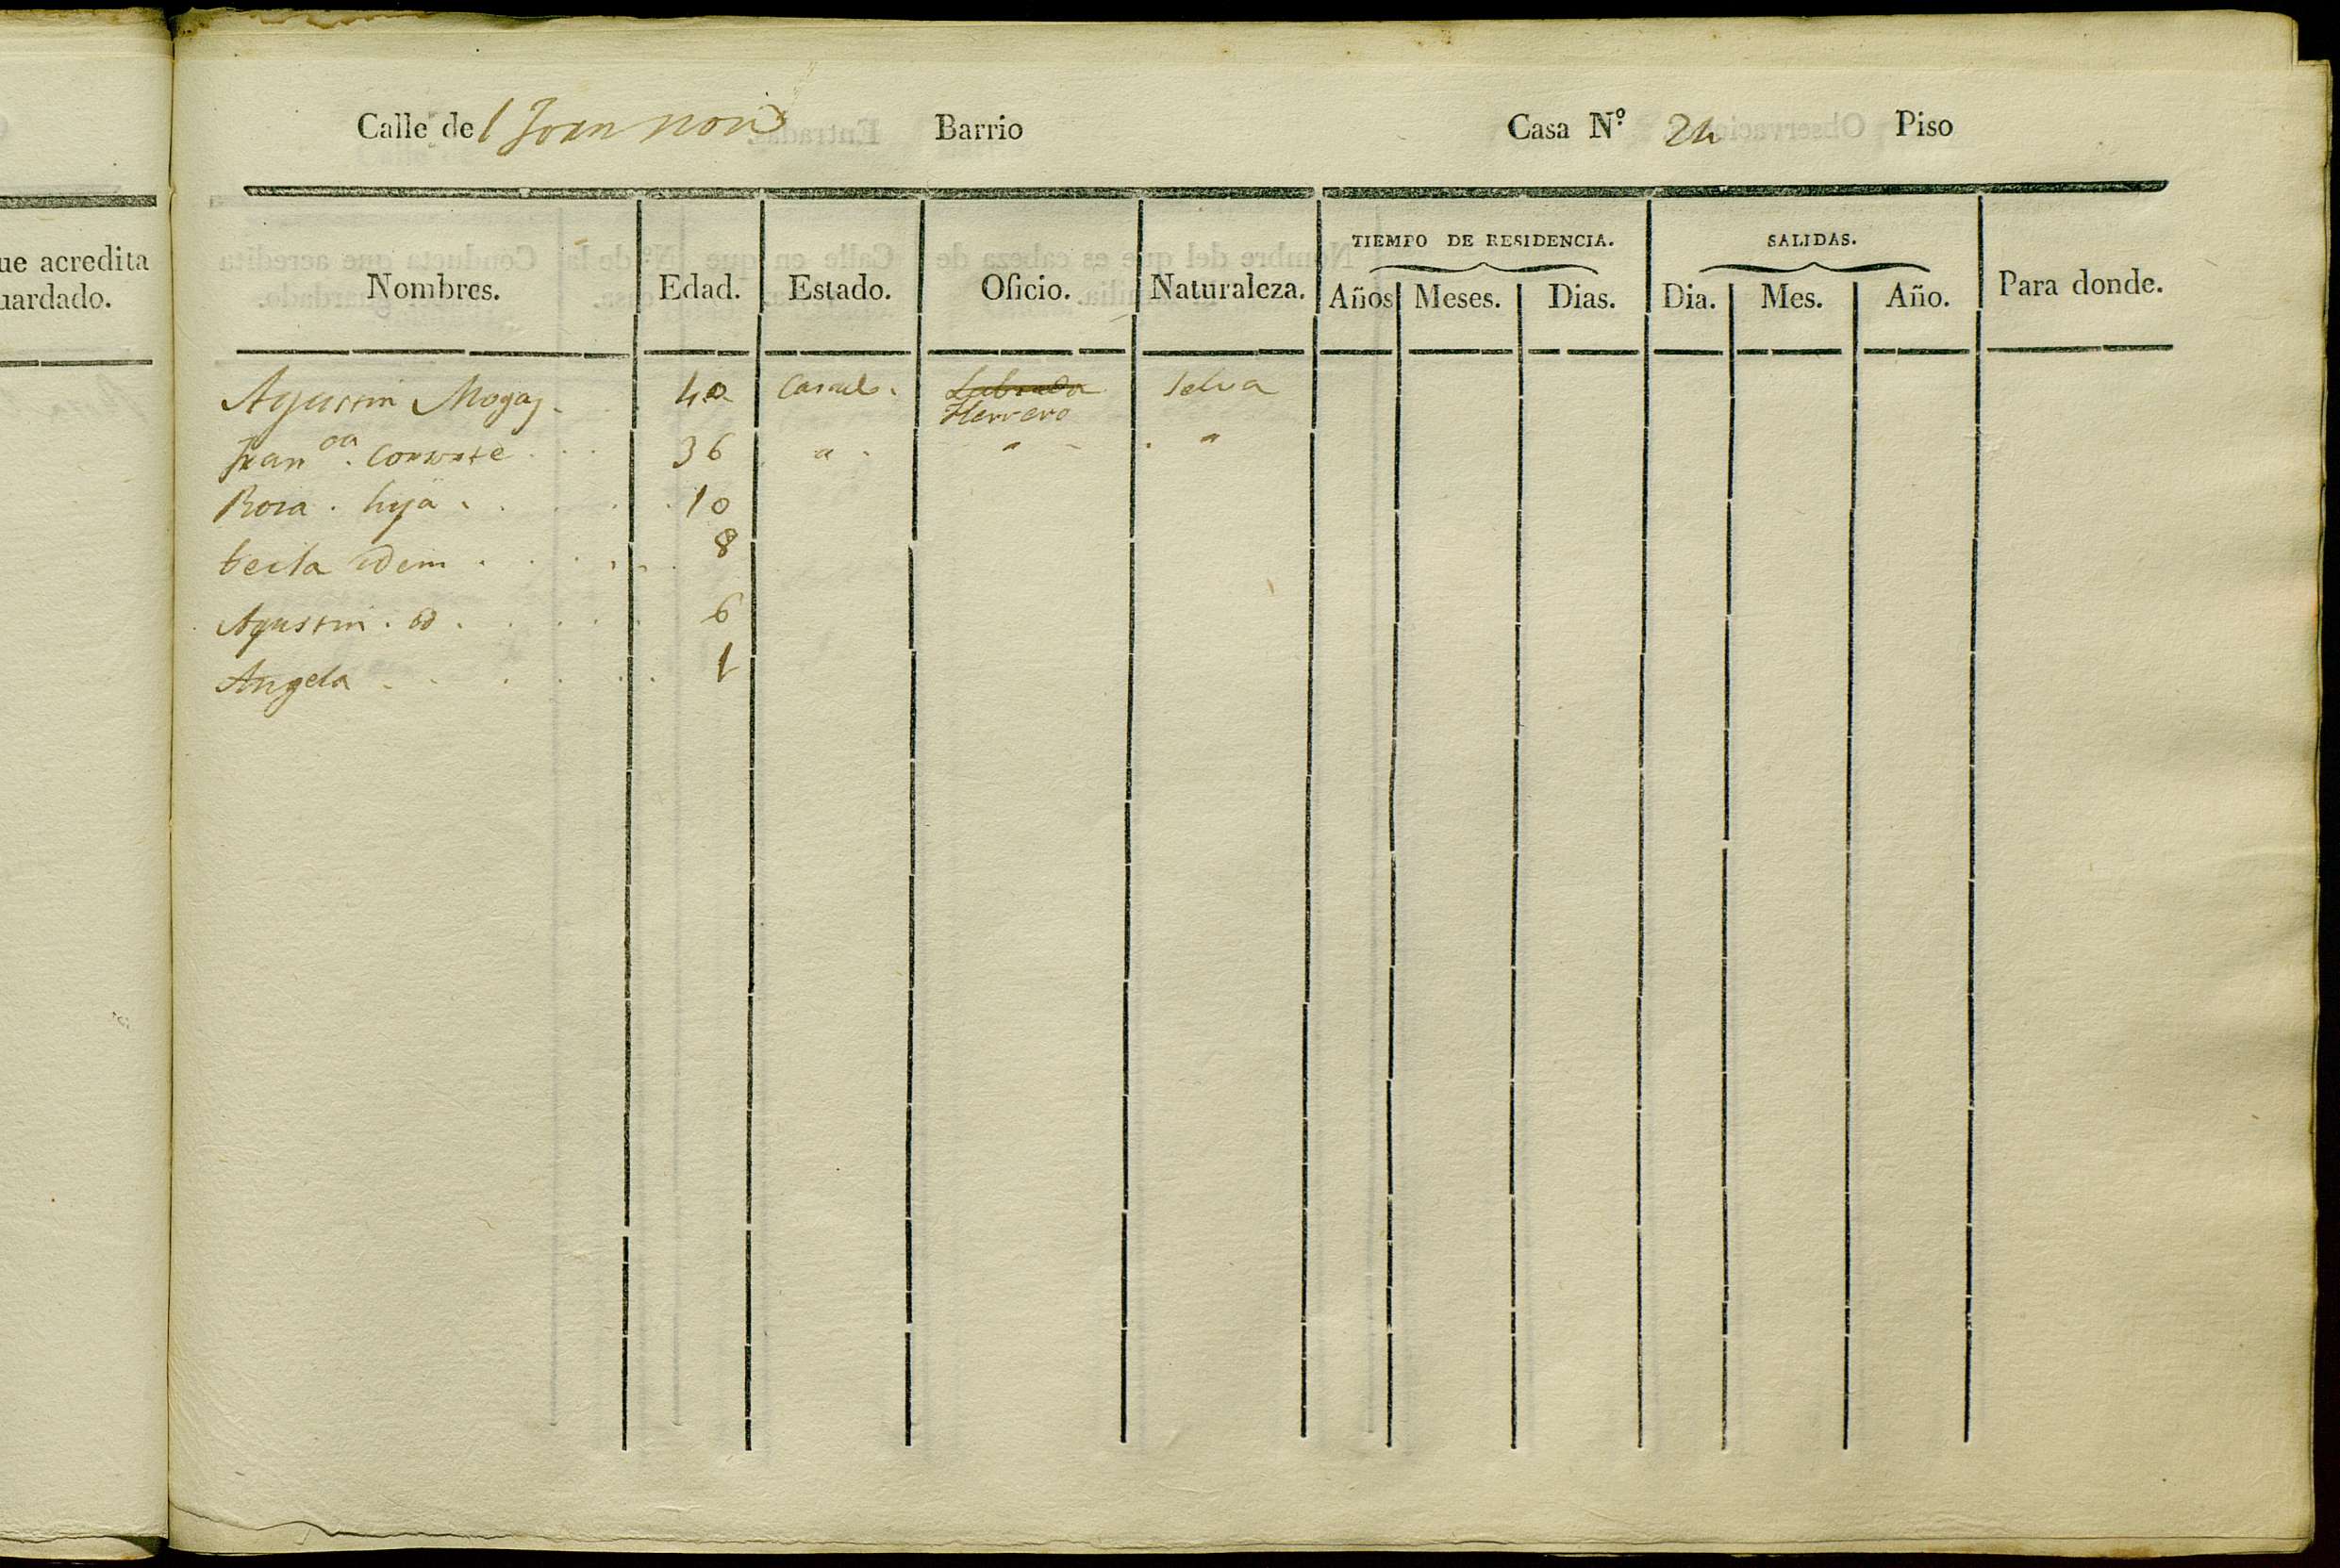 ue acredita
uardado.
Calle del Joan nou Barrio Casa N.º 24 Piso
Nombres. Edad. Estado. Oficio. Naturaleza. TIEMPO DE RESIDENCIA. Años Meses. Dias. SALIDAS. Dia. Mes. Año. Para donde.
Agustin Mogas 40 Casad. Labrado Selva
Herrero
Fran.ca Consorte 36 " " "
Rosa hija 10
Tecla idem 8
Agustin id 6
Angela 1